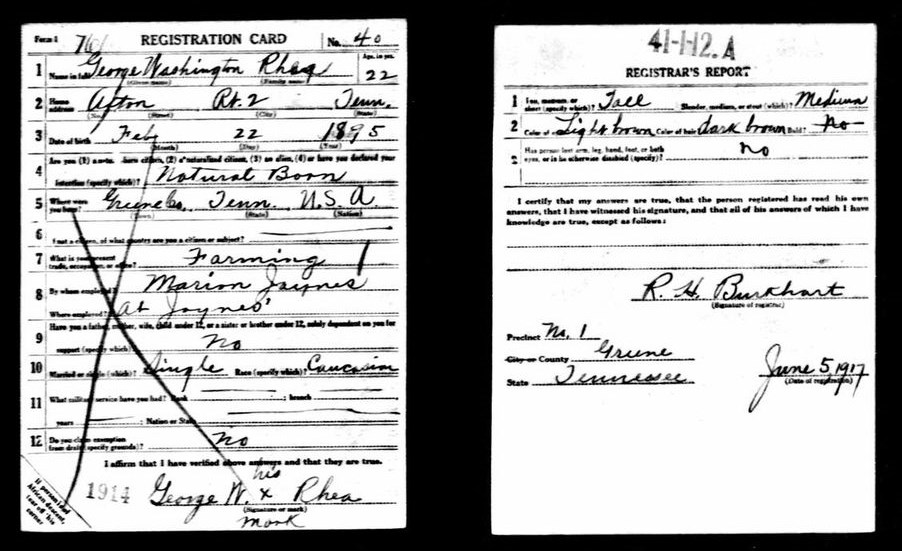 Form 1 REGISTRATION CARD No. 40
1 Name in full George Washington Rhea Age, in yrs. 22
(Given name) (Family name)
2 Home address Afton Rt. 2 Tenn.
(No.) (Street) (City) (State)
3 Date of birth Feb 22 1895
(Month) (Day) (Year)
Are you (1) a natural-born citizen, (2) a naturalized citizen, (3) an alien, (4) or have you declared your
4 intention (specify which)? Natural Born
5 Where were you born? Greene Co. Tenn. U.S.A.
(Town) (State) (Nation)
6 If not a citizen, of what country are you a citizen or subject?
7 What is your present trade, occupation, or office? Farming
8 By whom employed? Marion Jaynes
Where employed? At Jaynes'
9 Have you a father, mother, wife, child under 12, or a sister or brother under 12, solely dependent on you for
support (specify which)? No
10 Married or single (which)? Single Race (specify which)? Caucasian
11 What military service have you had? Rank branch
years : Nation or State
12 Do you claim exemption from draft (specify grounds)? No
I affirm that I have verified above answers and that they are true.
his
1914 George W. x Rhea
(Signature or mark)
mark
If person is of
African descent,
tear off this
corner
41-1-12. A
REGISTRAR'S REPORT
1 Tall, medium, or short (specify which)? Tall Slender, medium, or stout (which)? Medium
2 Color of eyes? Light brown Color of hair? dark brown Bald? No
3 Has person lost arm, leg, hand, foot, or both eyes, or is he otherwise disabled (specify)? No
I certify that my answers are true, that the person registered has read his own
answers, that I have witnessed his signature, and that all of his answers of which I have
knowledge are true, except as follows:
R. H. Burkhart
(Signature of registrar)
Precinct No. 1
City or County Greene
State Tennessee
June 5, 1917
(Date of registration)